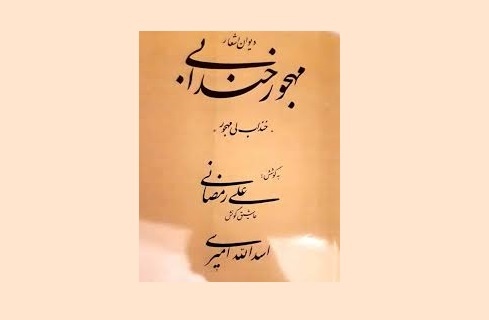 دیوان اشعار
مهجور خندابی
خنداب لی مهجور
به کوشش:
علی رمضانی
عاشیق گونش
اسدالله امیری